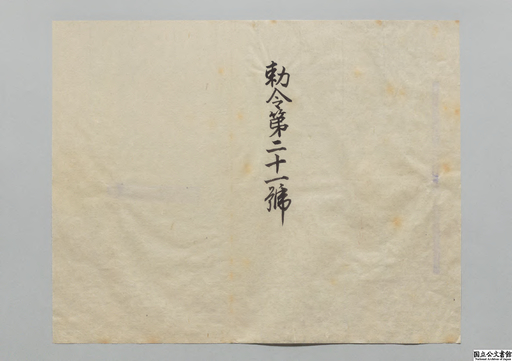 勅令第二十一號
国立公文書館
National Archives of Japan